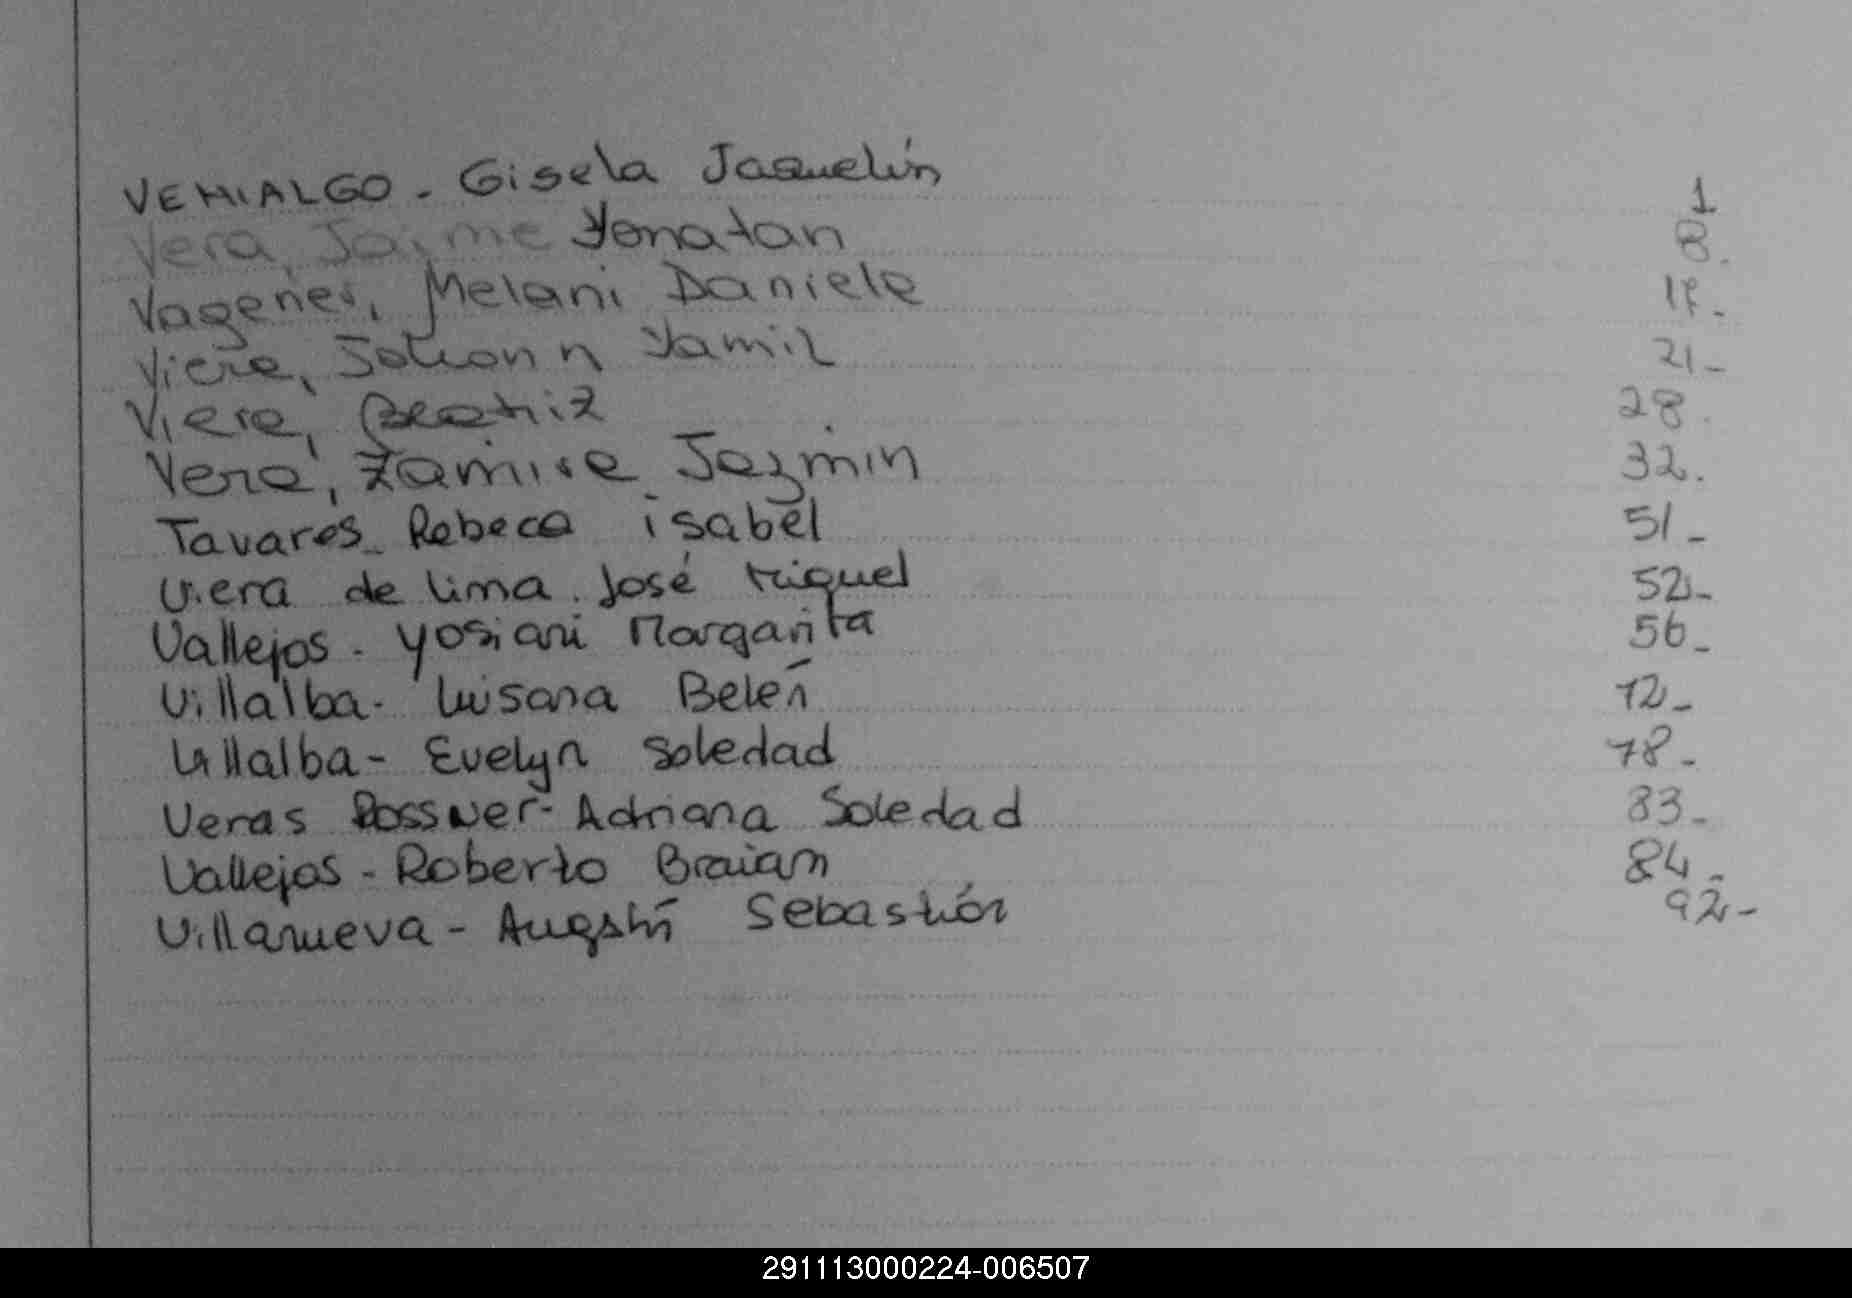 VEHIALGO - Gisela Jaquelín 1
Vera, Jaime Yonatan 8.
Vagener, Melani Daniela 17.
Viera, Johonn Yamil 21-
Viera, Beatriz 28.
Vera, Zamira Jazmin 32.
Tavares Rebeca isabel 51-
Viera de lima. José Miguel 52-
Vallejos - Yosiani Margarita 56-
Villalba - Luisana Belén 72-
Villalba - Evelyn Soledad 78-
Veras Possner - Adriana Soledad 83-
Vallejos - Roberto Braian 84-
Villanueva - Augstín Sebastián 92-
291113000224-006507